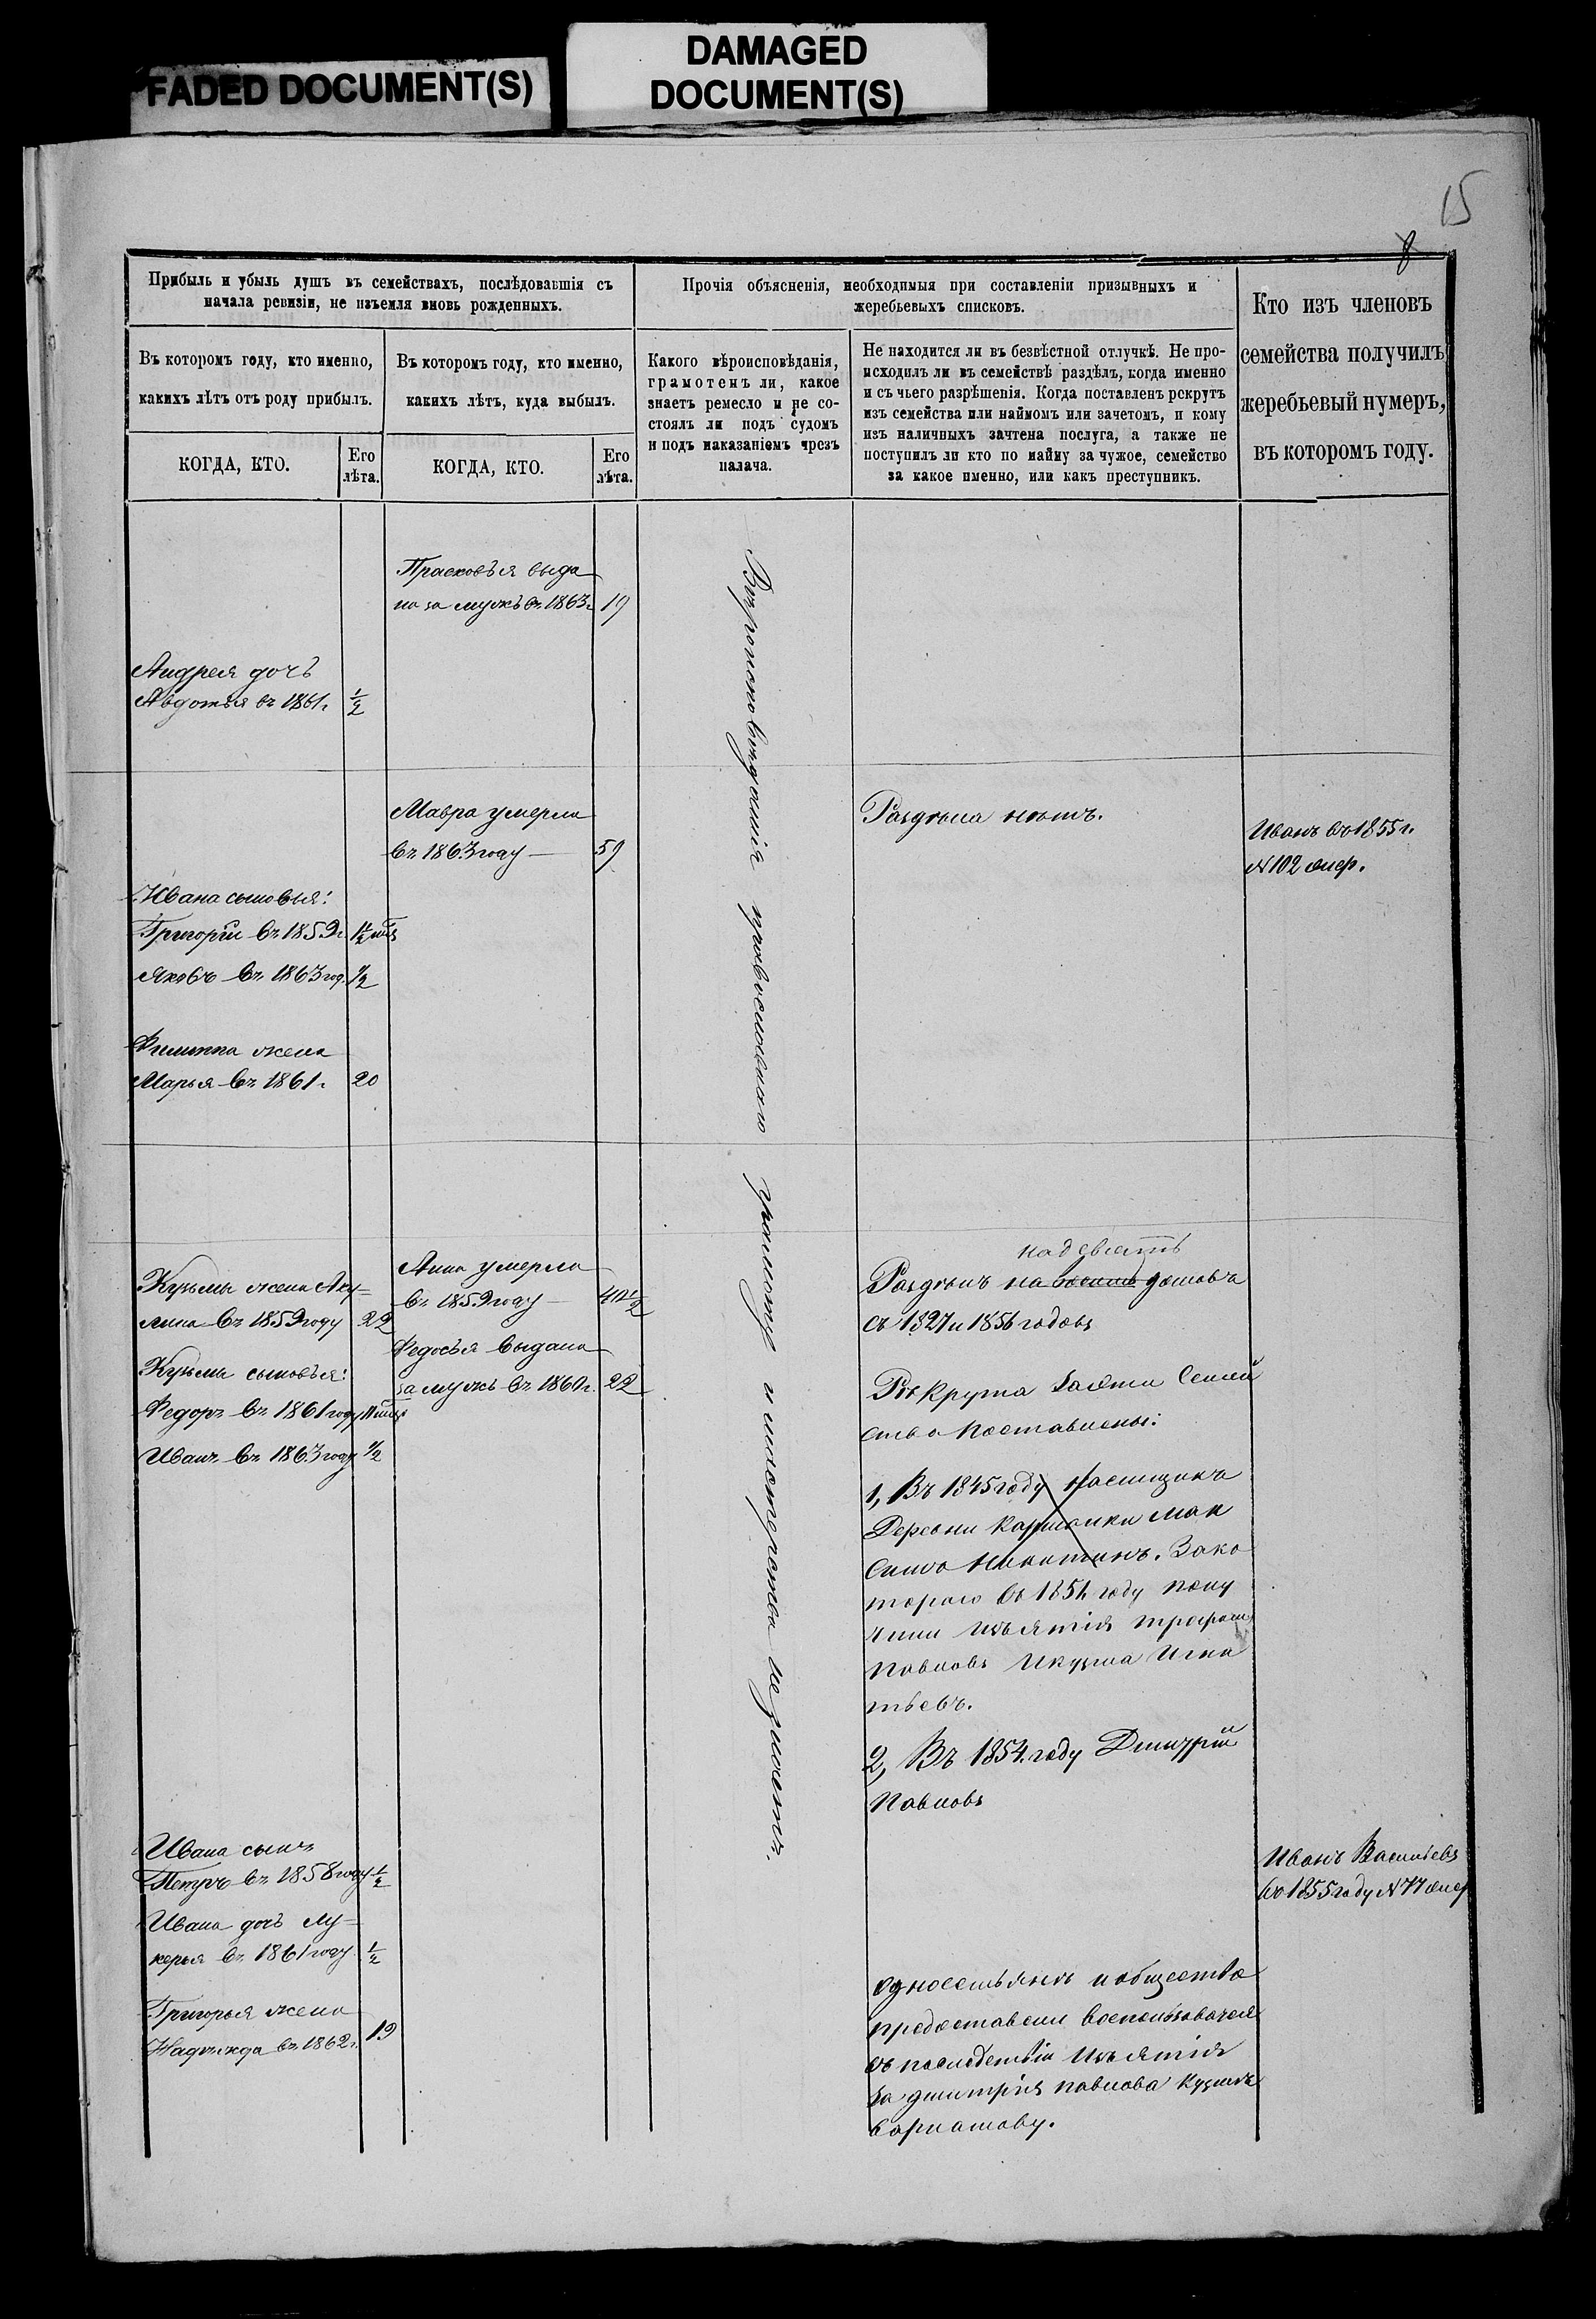 FADED DOCUMENT(S)
DAMAGED
DOCUMENT(S)
15
8
Прибыль и убыль душъ въ семействахъ, послѣдовавшія съ
начала ревизіи, не изъемля вновь рожденныхъ.
Въ которомъ году, кто именно,
какихъ лѣтъ отъ роду прибылъ.
КОГДА, КТО.
Его
лѣта.
Въ которомъ году, кто именно,
какихъ лѣтъ, куда выбылъ.
КОГДА, КТО.
Его
лѣта.
Прочія объясненія, необходимыя при составленіи призывныхъ и
жеребьевыхъ списковъ.
Какого вѣроисповѣданія,
грамотенъ ли, какое
знаетъ ремесло и не со-
стоялъ ли подъ судомъ
и подъ наказаніемъ чрезъ
палача.
Не находится ли въ безвѣстной отлучкѣ. Не про-
исходилъ ли въ семействѣ раздѣлъ, когда именно
и съ чьего разрѣшенія. Когда поставленъ рекрутъ
изъ семейства или наймомъ или зачетомъ, и кому
изъ наличныхъ зачтена послуга, а также не
поступилъ ли кто по найму за чужое, семейство
за какое именно, или какъ преступникъ.
Кто изъ членовъ
семейства получилъ
жеребьевый нумеръ,
въ которомъ году.
Прасковья выда
на за мужъ въ 1863 г. 19
Андрея дочь
Авдотья въ 1861 г. 1/2
Мавра умерла
въ 1863 году — 59
Раздѣла нѣтъ.
Иванъ въ 1855 г.
№ 102 жер.
Ивана сыновья:
Григорій въ 1859 г. 1/2
Яковъ въ 1863 год. 1/2
Филиппа жена
Марья въ 1861 г. 20
Вѣроисповѣданія православнаго грамоте и мастерства не знаютъ.
Кузьмы жена Аку=
лина въ 1859 году 22
Кузьмы сыновья:
Федоръ въ 1861 году
Иванъ въ 1863 году 1/2
Анна умерла
въ 1859 году —
Федосья выдана
за мужъ въ 1860 г. 22
на девять
Раздѣлъ на домовъ
съ 1827 и 1856 годовъ
Рекрута Семей
ства поставлены:
1, Въ 1845 году наемщика
Деревни Мак
сима Никитинъ. Зако
тораго въ 1854 году полу
чили изъятія трофим
Павловъ И кузма Игна
тьевъ.
2, Въ 1854 году Дмитрій
Павловъ
Ивана сынъ
Петръ въ 1858 году 1/2
Ивана дочь Лу=
керья въ 1861 году. 1/2
Григорья жена
Надежда въ 1862 г. 19
Иванъ Васильевъ
во 1855 году № 77 жер
односельянъ и общество
предоставели воспользоватся
въ последствіи Изъятія
за дмитрія павлова Кузьмѣ